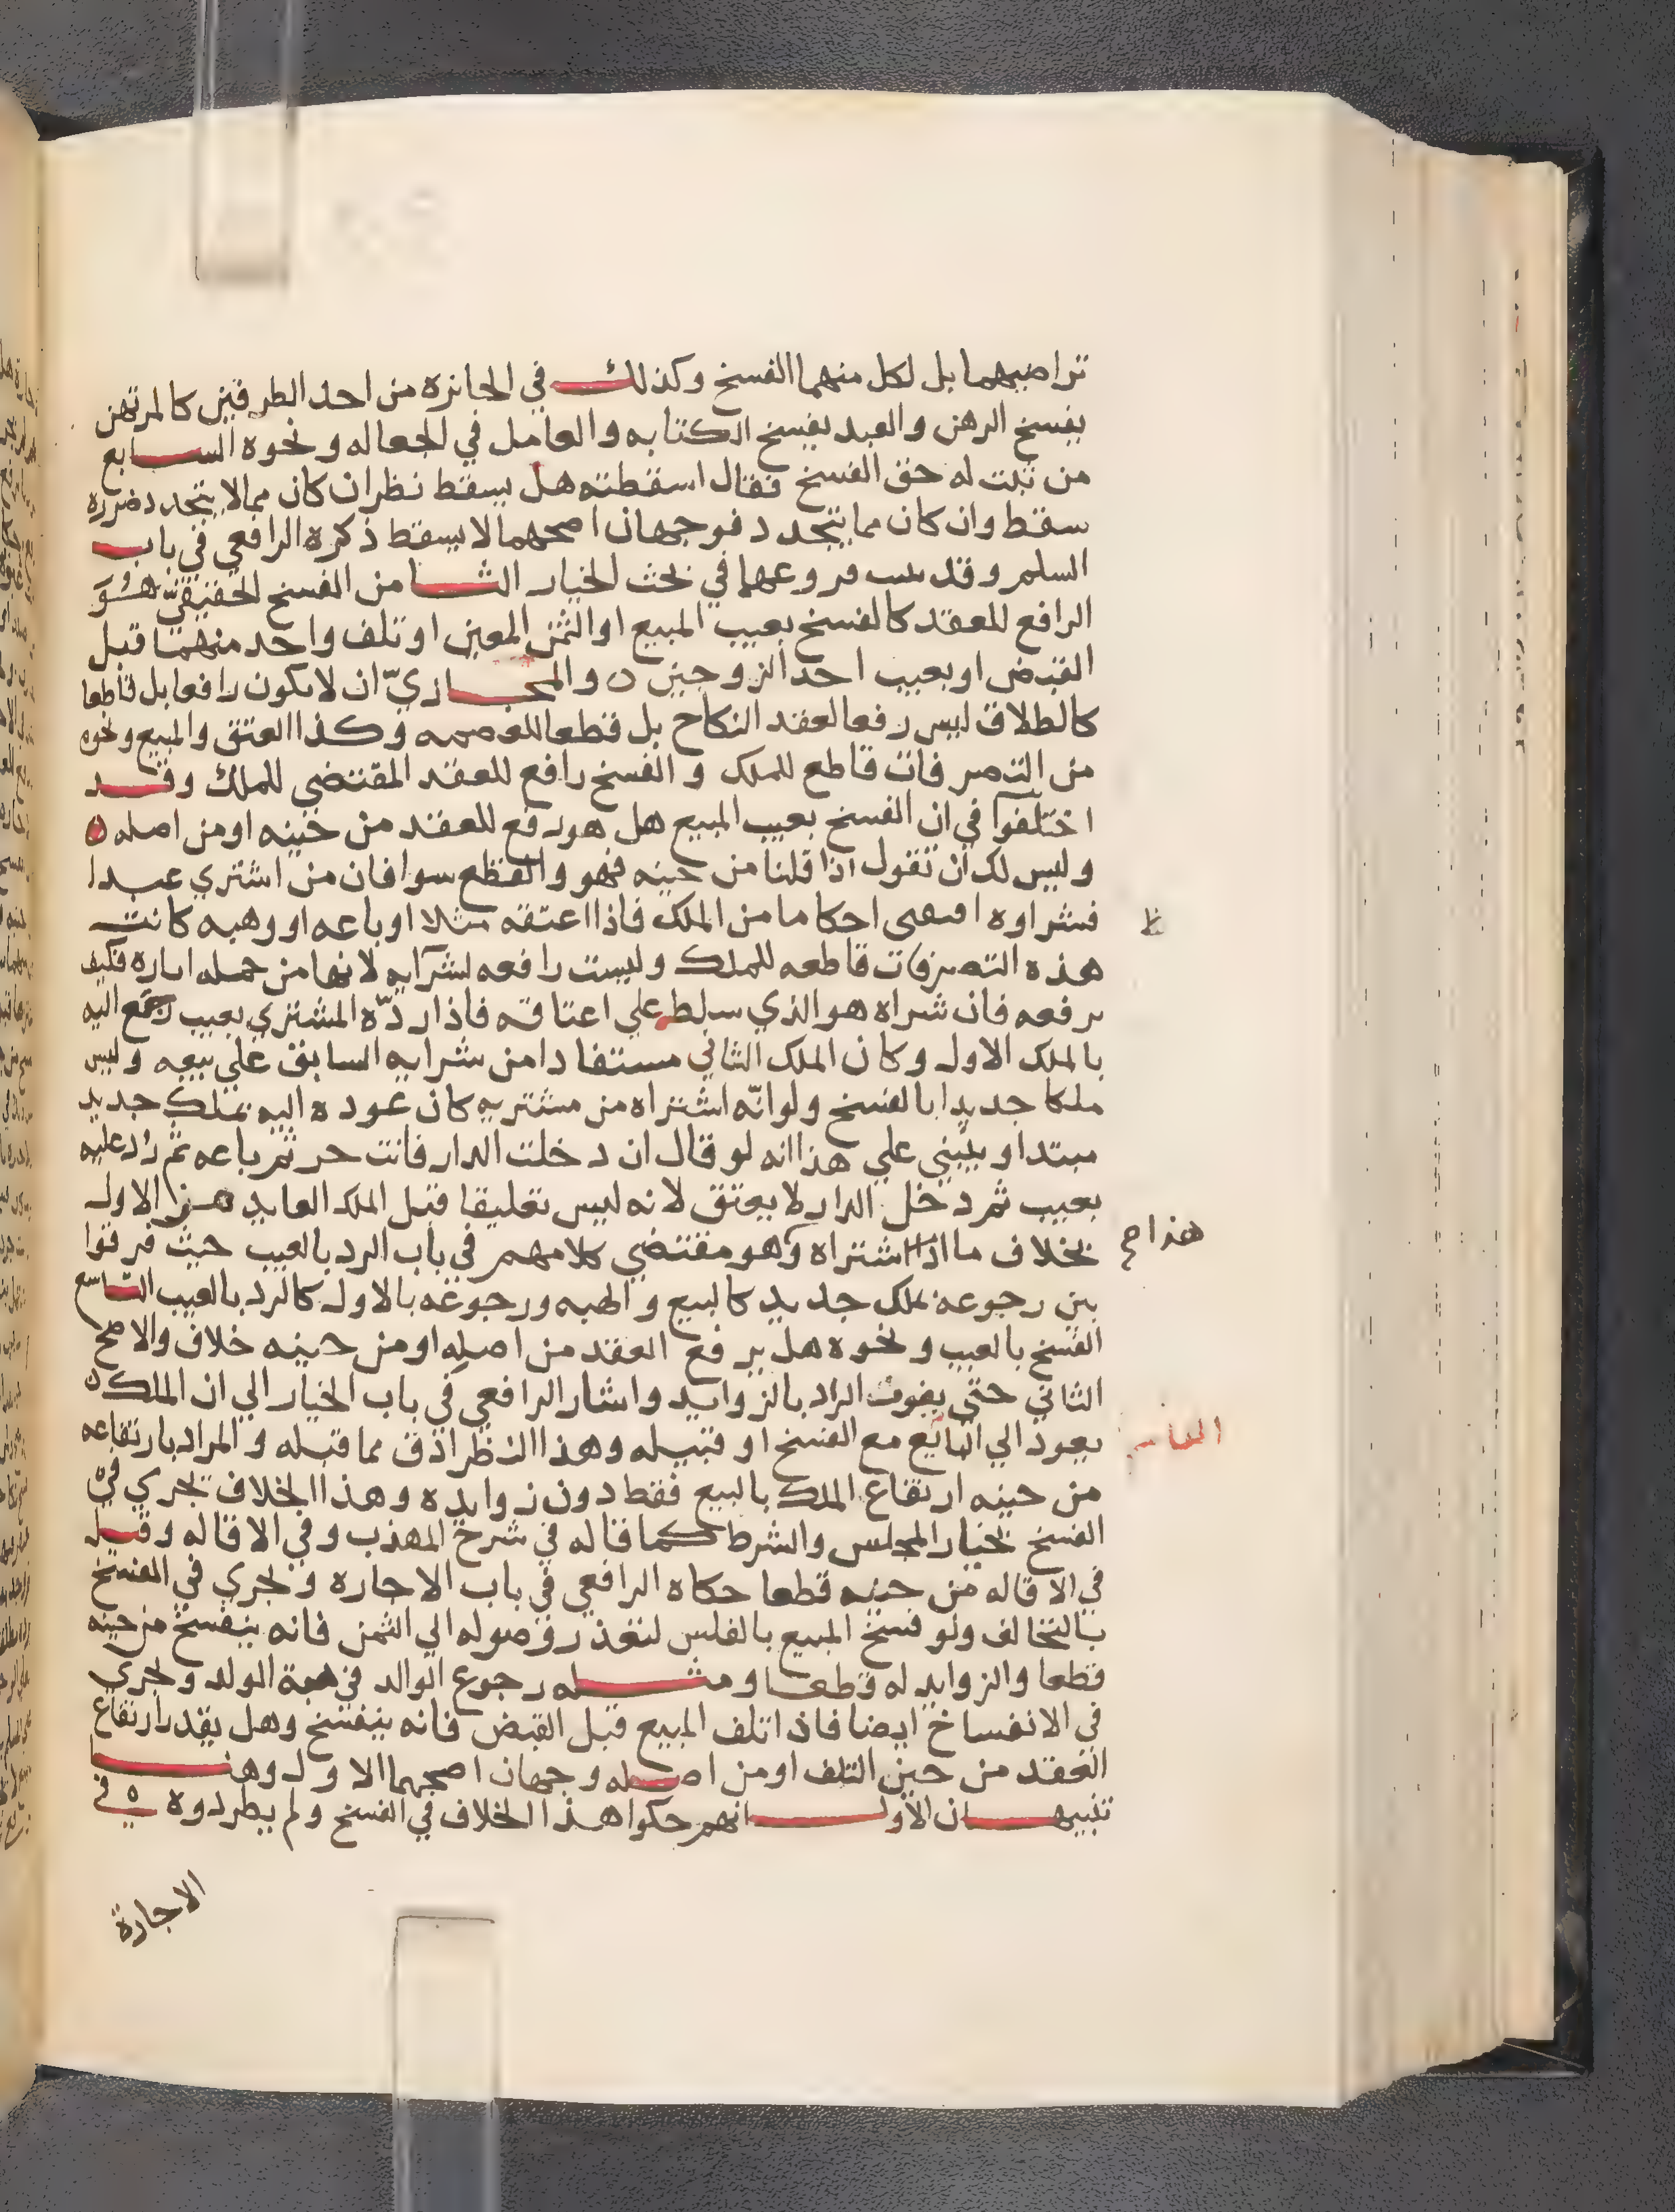 تراضيهما بل لكل منهما الفسخ وكذلك في الجائزه من احد الطرفين كالمرتهن
يفسخ الرهن والعبد يفسخ الكتابه والعامل في الجعاله ونحوه السابع
من ثبت له حق الفسخ فقال اسقطته هل يسقط نظر ان كان مما لا يتجدد ضرره
سقط وان كان مما يتجدد فوجهان اصحهما لا يسقط ذكره الرافعي في باب
السلم وقد فروعها في بحث الخيار الثامن الفسخ الحقيقيّ هُوَ
الرافع للعقد كالفسخ بعيب المبيع او الثمن المعين او تلف واحد منهما قبل
القبض او بعيب احد الزوجين ٥ والمجازيّ ان لا يكون رافعا بل قاطعا
كالطلاق ليس رفعا لعقد النكاح بل قطعا للعصمه وكذا العتق والمبيع ونحوه
من التصرفات قاطع للملك والفسخ رافع للعقد المقتضي للملك وقد
اختلفوا في ان الفسخ بعيب المبيع هل هو رفع للعقد من حينه او من اصله ٥
وليس لك ان تقول اذا قلنا من حينه فهو والقطع سوا فان من اشتري عبدا
فشراوه اقتضى احكاما من الملك فاذا اعتقه مثلا او باعه او وهبه كانت
ظ
هذه التصرفات قاطعه للملك وليست رافعه لشرايه لانها من جمله اثاره فكيف
يرفعه فان شراه هو الذي سلط علي اعتاقه فاذا ردّه المشتري بعيب رجع اليه
بالملك الاول وكان الملك الثاني مستفادا من شرايه السابق علي بيعه وليس
ملكا جديدا بالفسخ ولو انّه اشتراه من مشتريه كان عوده اليه بملك جديد
مبتدا ويبني علي هذا انه لو قال ان دخلت الدار فانت حر ثم باعه ثم رد عليه
بعيب ثم دخل الدار لا يعتق لانه ليس تعليقا قبل الملك العايد هذا الاول
هذا صح
بخلاف ما اذا اشتراه وهو مقتضي كلامهم في باب الرد بالعيب حيث فرقوا
بين رجوعه بملك جديد كالبيع والهبه ورجوعه بالاول كالرد بالعيب التاسع
الفسخ بالعيب ونحوه هل يرفع العقد من اصله او من حينه خلاف والاصح
الثاني حتى يفوت الراد بالزوايد واشار الرافعي في باب الخيار الي ان الملك ٥
يعود الي البائع مع الفسخ او قبيله وهذا النظر ادق مما قبله والمراد بارتفاعه
العاشر
من حينه ارتفاع الملك بالبيع فقط دون زوايده وهذا الخلاف يجري في
الفسخ بخيار المجلس والشرط كما قاله في شرح المهذب وفي الاقاله وقيل
في الاقاله من حينه قطعا حكاه الرافعي في باب الاجاره ويجري في الفسخ
بالتخالف ولو فسخ المبيع بالفلس لتعذر وصوله الي الثمن فانه ينفسخ من حينه
قطعا والزوايد له قطعا ومثله رجوع الوالد في هبة الولد ويجري
في الانفساخ ايضا فاذا تلف المبيع قبل القبض فانه ينفسخ وهل يقدر ارتفاع
العقد من حين التلف او من اصله وجهان اصحهما الاول وهنا
تنبيهان الاول انهم حكوا هذا الخلاف في الفسخ ولم يطردوه ٥ في
الاجارة